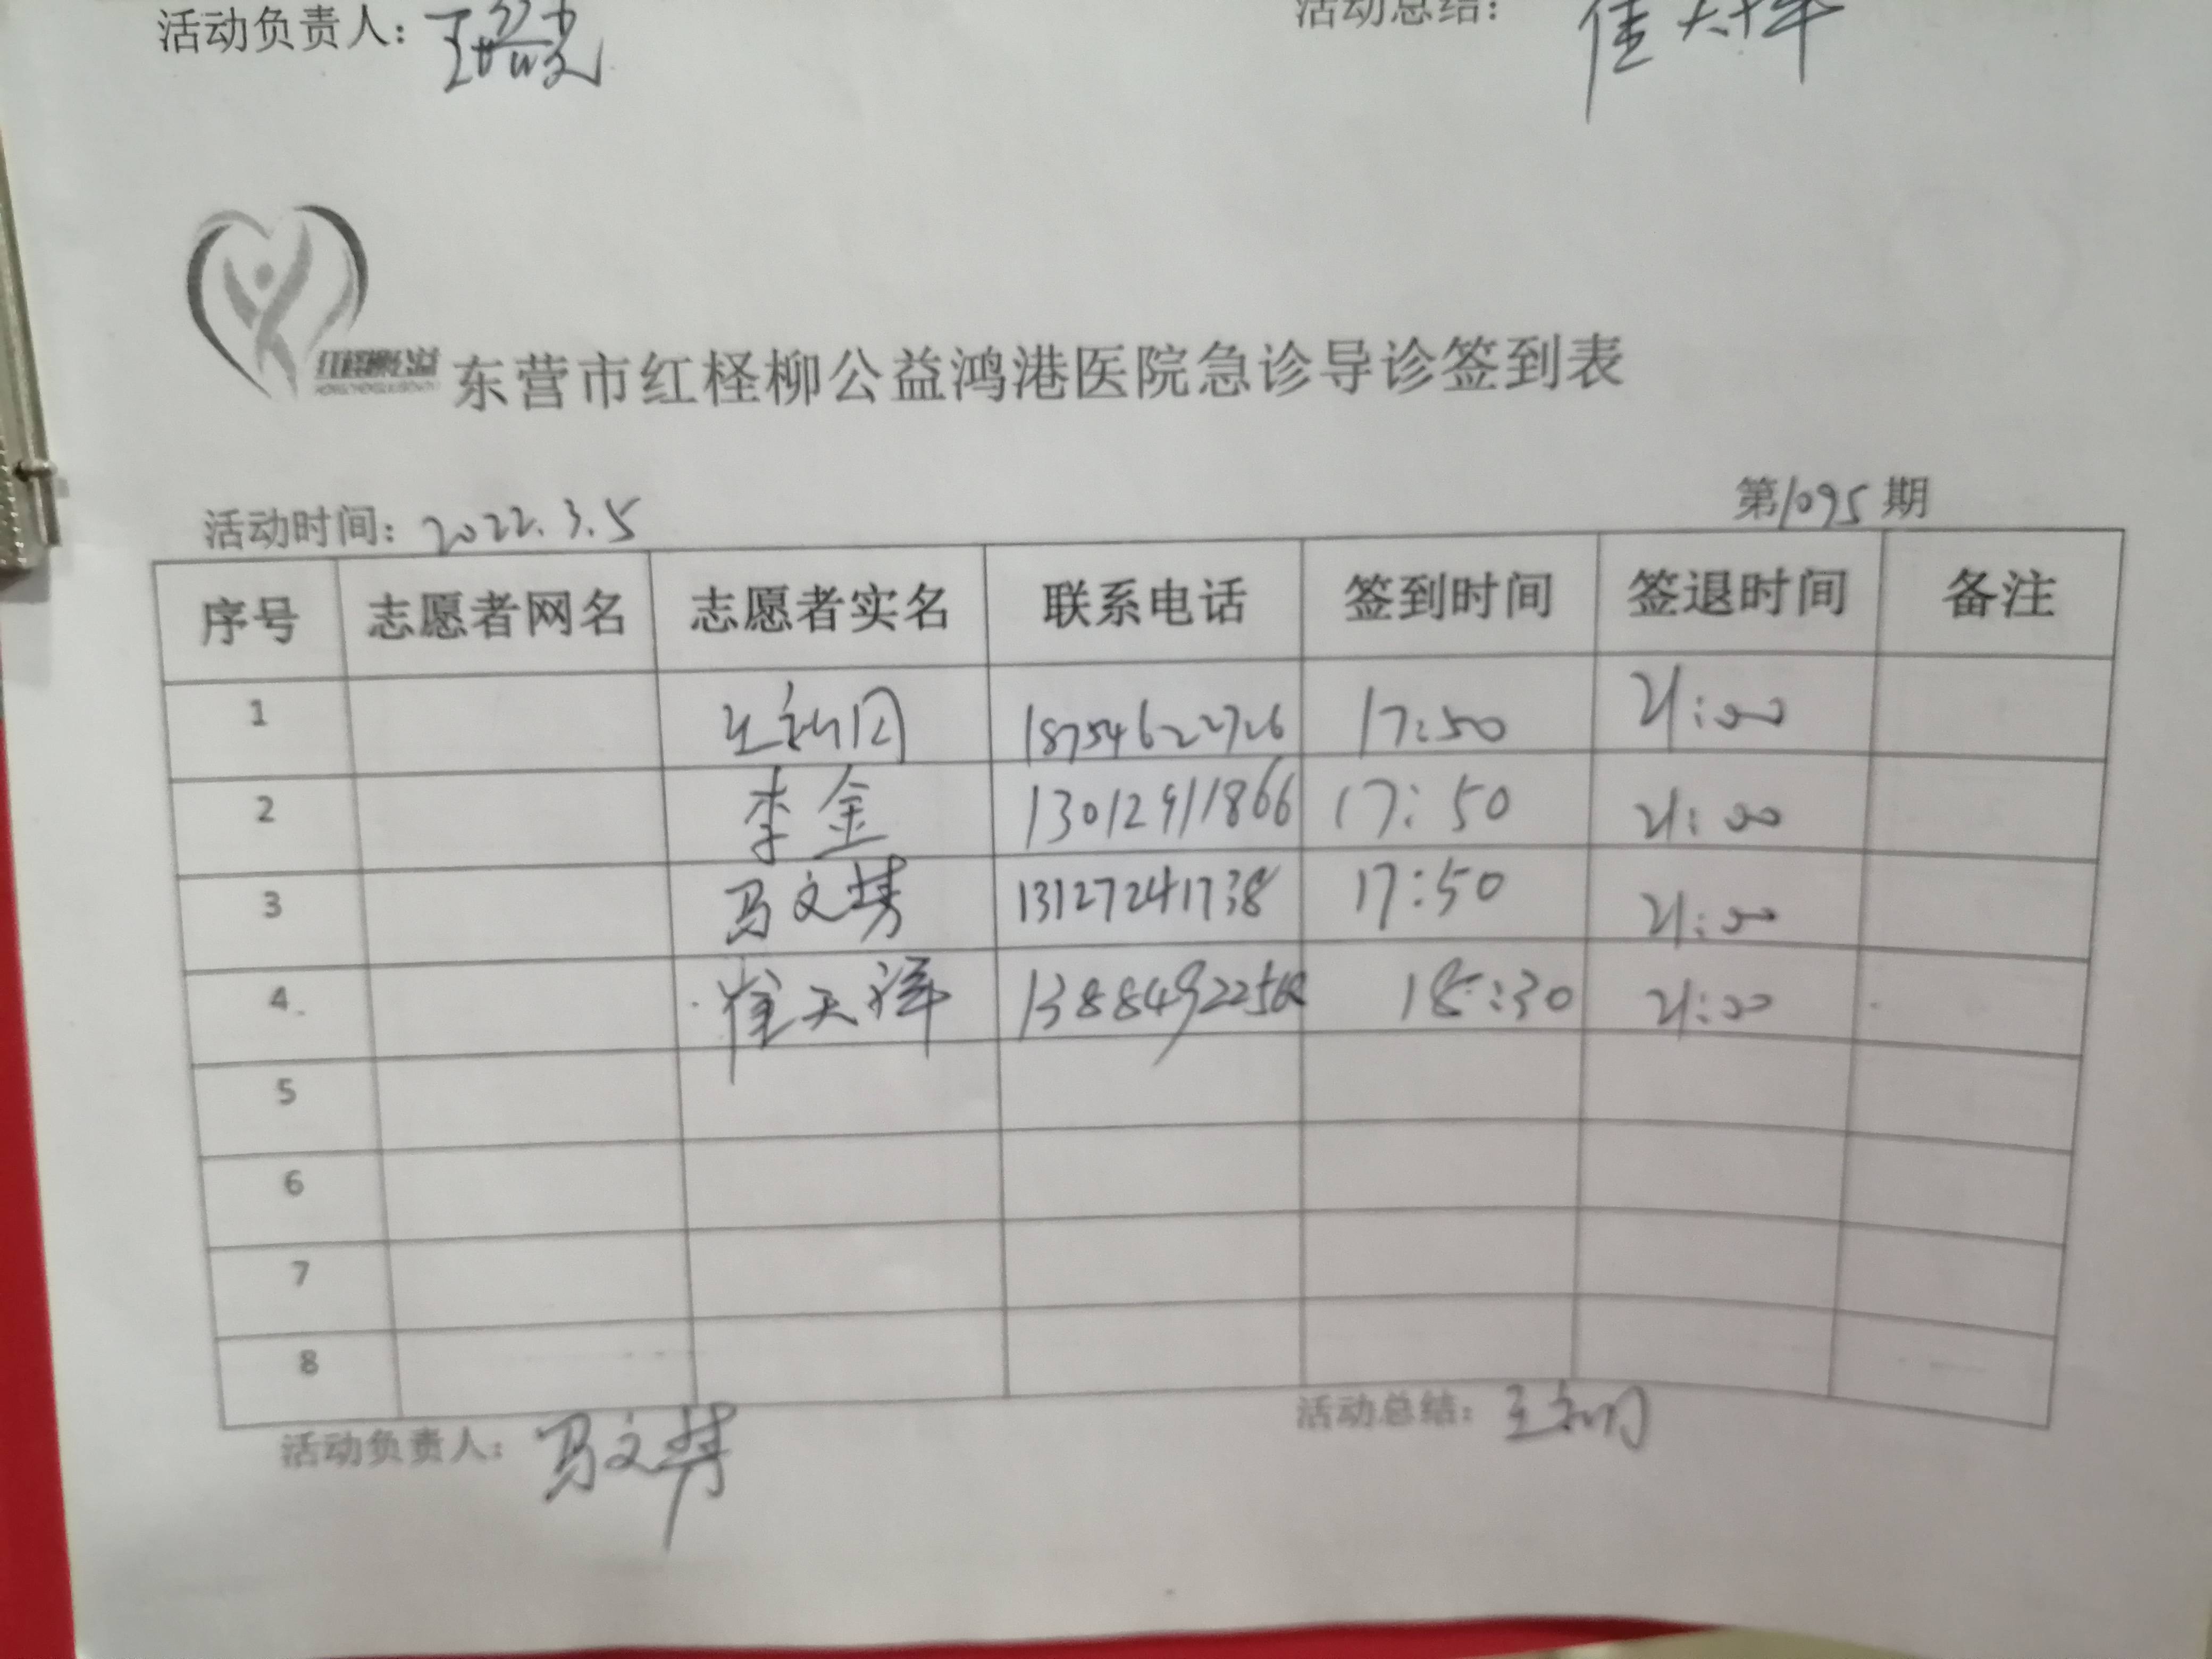 活动负责人：
活动总结：
红柽柳公益
东营市红柽柳公益鸿港医院急诊导诊签到表
活动时间：2022.3.5 第1095期
序号 志愿者网名 志愿者实名 联系电话 签到时间 签退时间 备注
1 18754622726 17:50 21:00
2 李金 13012911866 17:50 21:00
3 马文慧 13127241738 17:50 21:00
4 崔天祥 18:30 21:00
5
6
7
8
活动负责人：马文慧 活动总结：